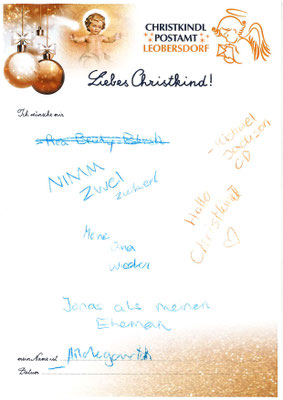 CHRISTKINDL
POSTAMT
LEOBERSDORF
Liebes Christkind!
Ich wünsche mir
NIMM
ZWEI
zuckerl
- Michael
Jackson
CD
Hallo
Christkind
Meine
Oma
wieder
Jonas als meinen
Eheman
mein Name ist
Datum